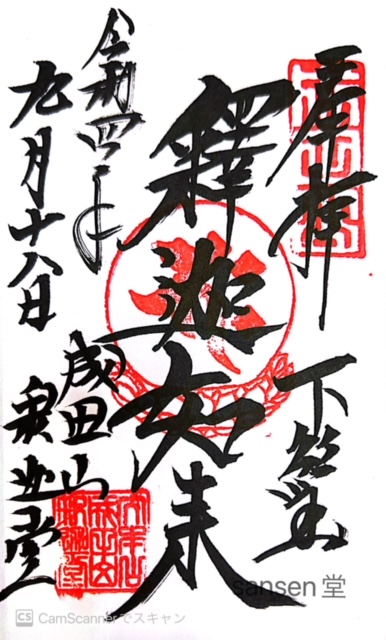 奉拝
下
釋迦如来
令和四年
九月十八日
成田山
釈迦堂
sansen堂
CS CamScannerでスキャン